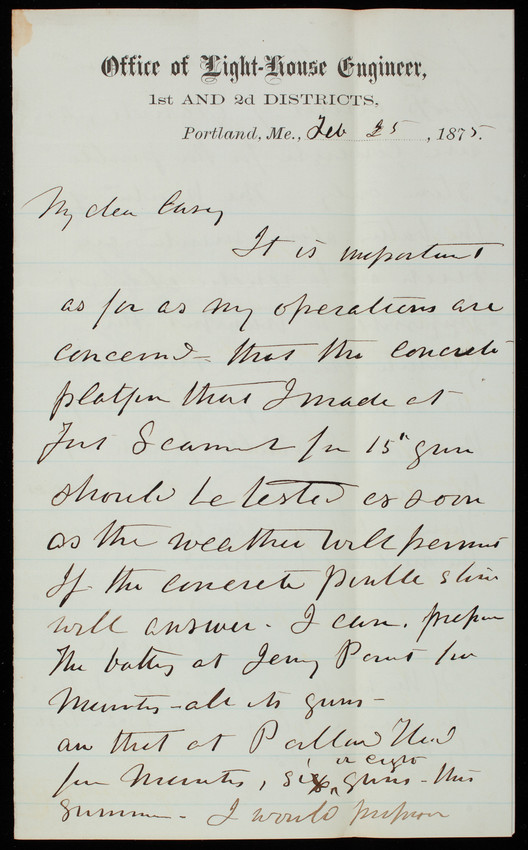 Office of Light-House Engineer,
1st AND 2d DISTRICTS,
Portland, Me., Feb 25, 1875.
My dear Casey
It is important
as far as my operations are
concerned - that the concrete
platform that I made at
Fort Scammel for 15" gun
should be tested as soon
as the weather will permit
If the concrete pintle stone
will answer - I can prepare
the battery at Jerry Point for
- all its guns -
and that at Portland Head
for , six or eight guns - this
summer - I would